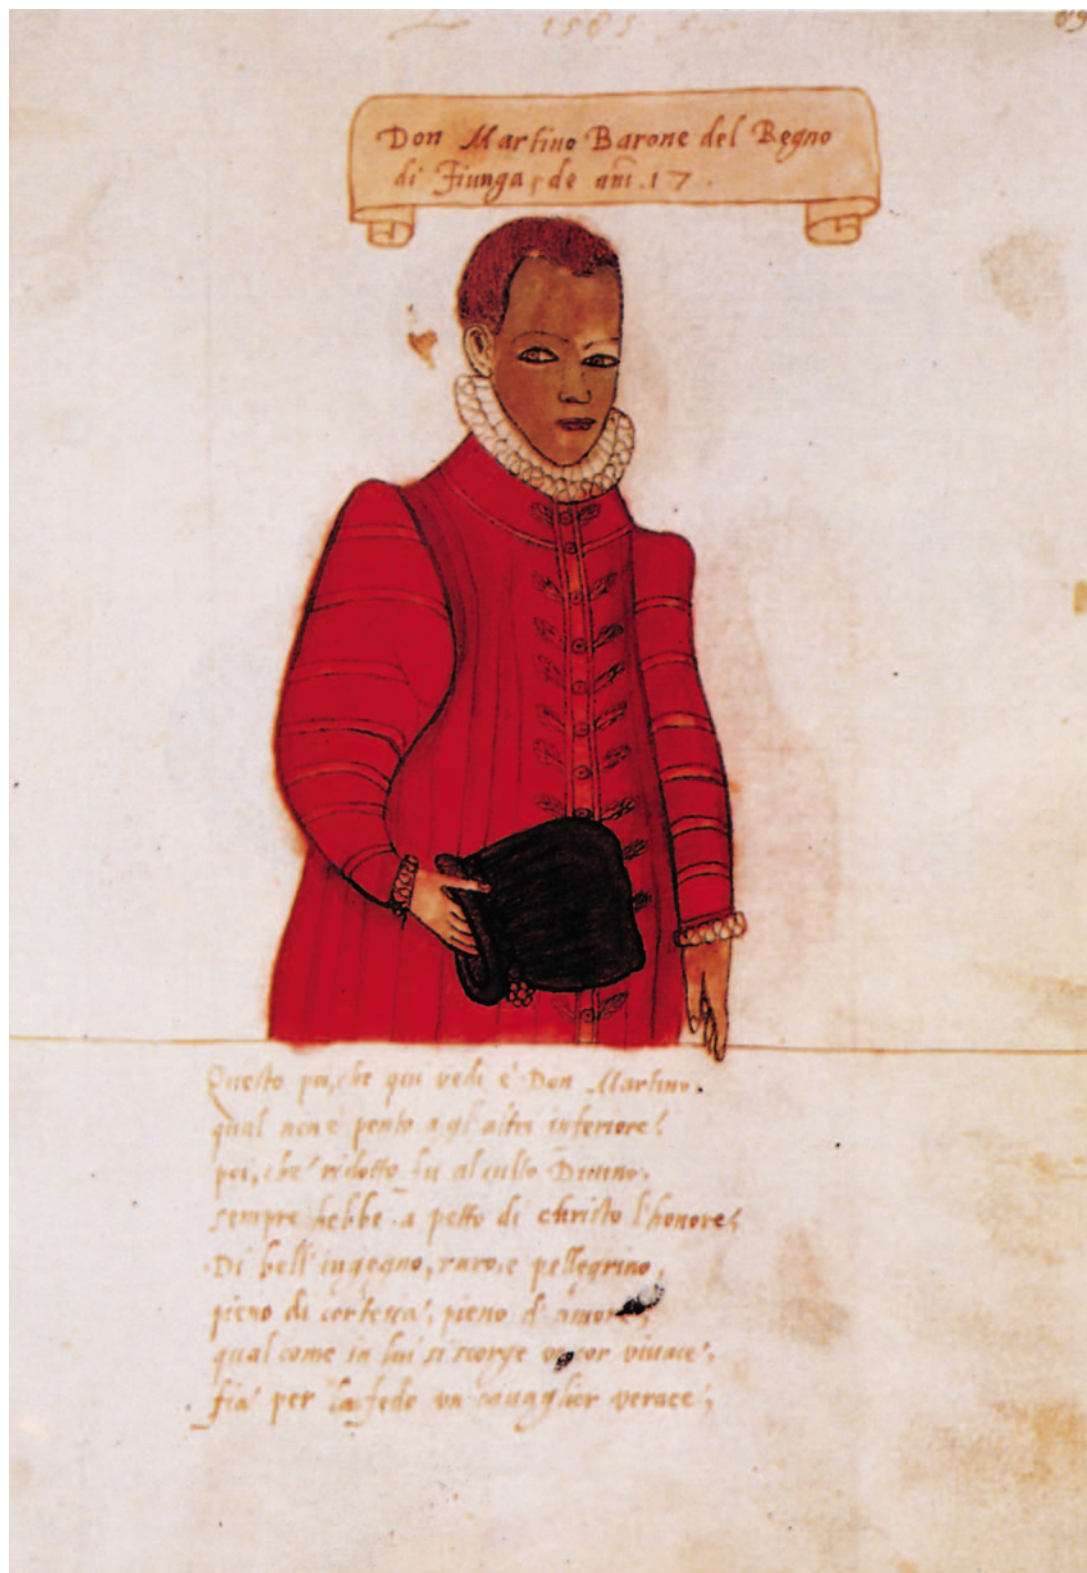 1585
69
Don Martino Barone del Regno
di Fiunga, de anñi. 17.
Questo poi, che qui vedi é Don Martino.
qual non é ponto a gl' altri inferiore!
poi, che ridotto fu al culto Diuino.
sempre hebbe a petto di christo l'honore!
Di bell' ingegno, raro, e pellegrino,
pieno di cortesia, pieno d' amore,
qual come in lui si scorge un cor viuace,
fia per la fede un cauaglier verace;